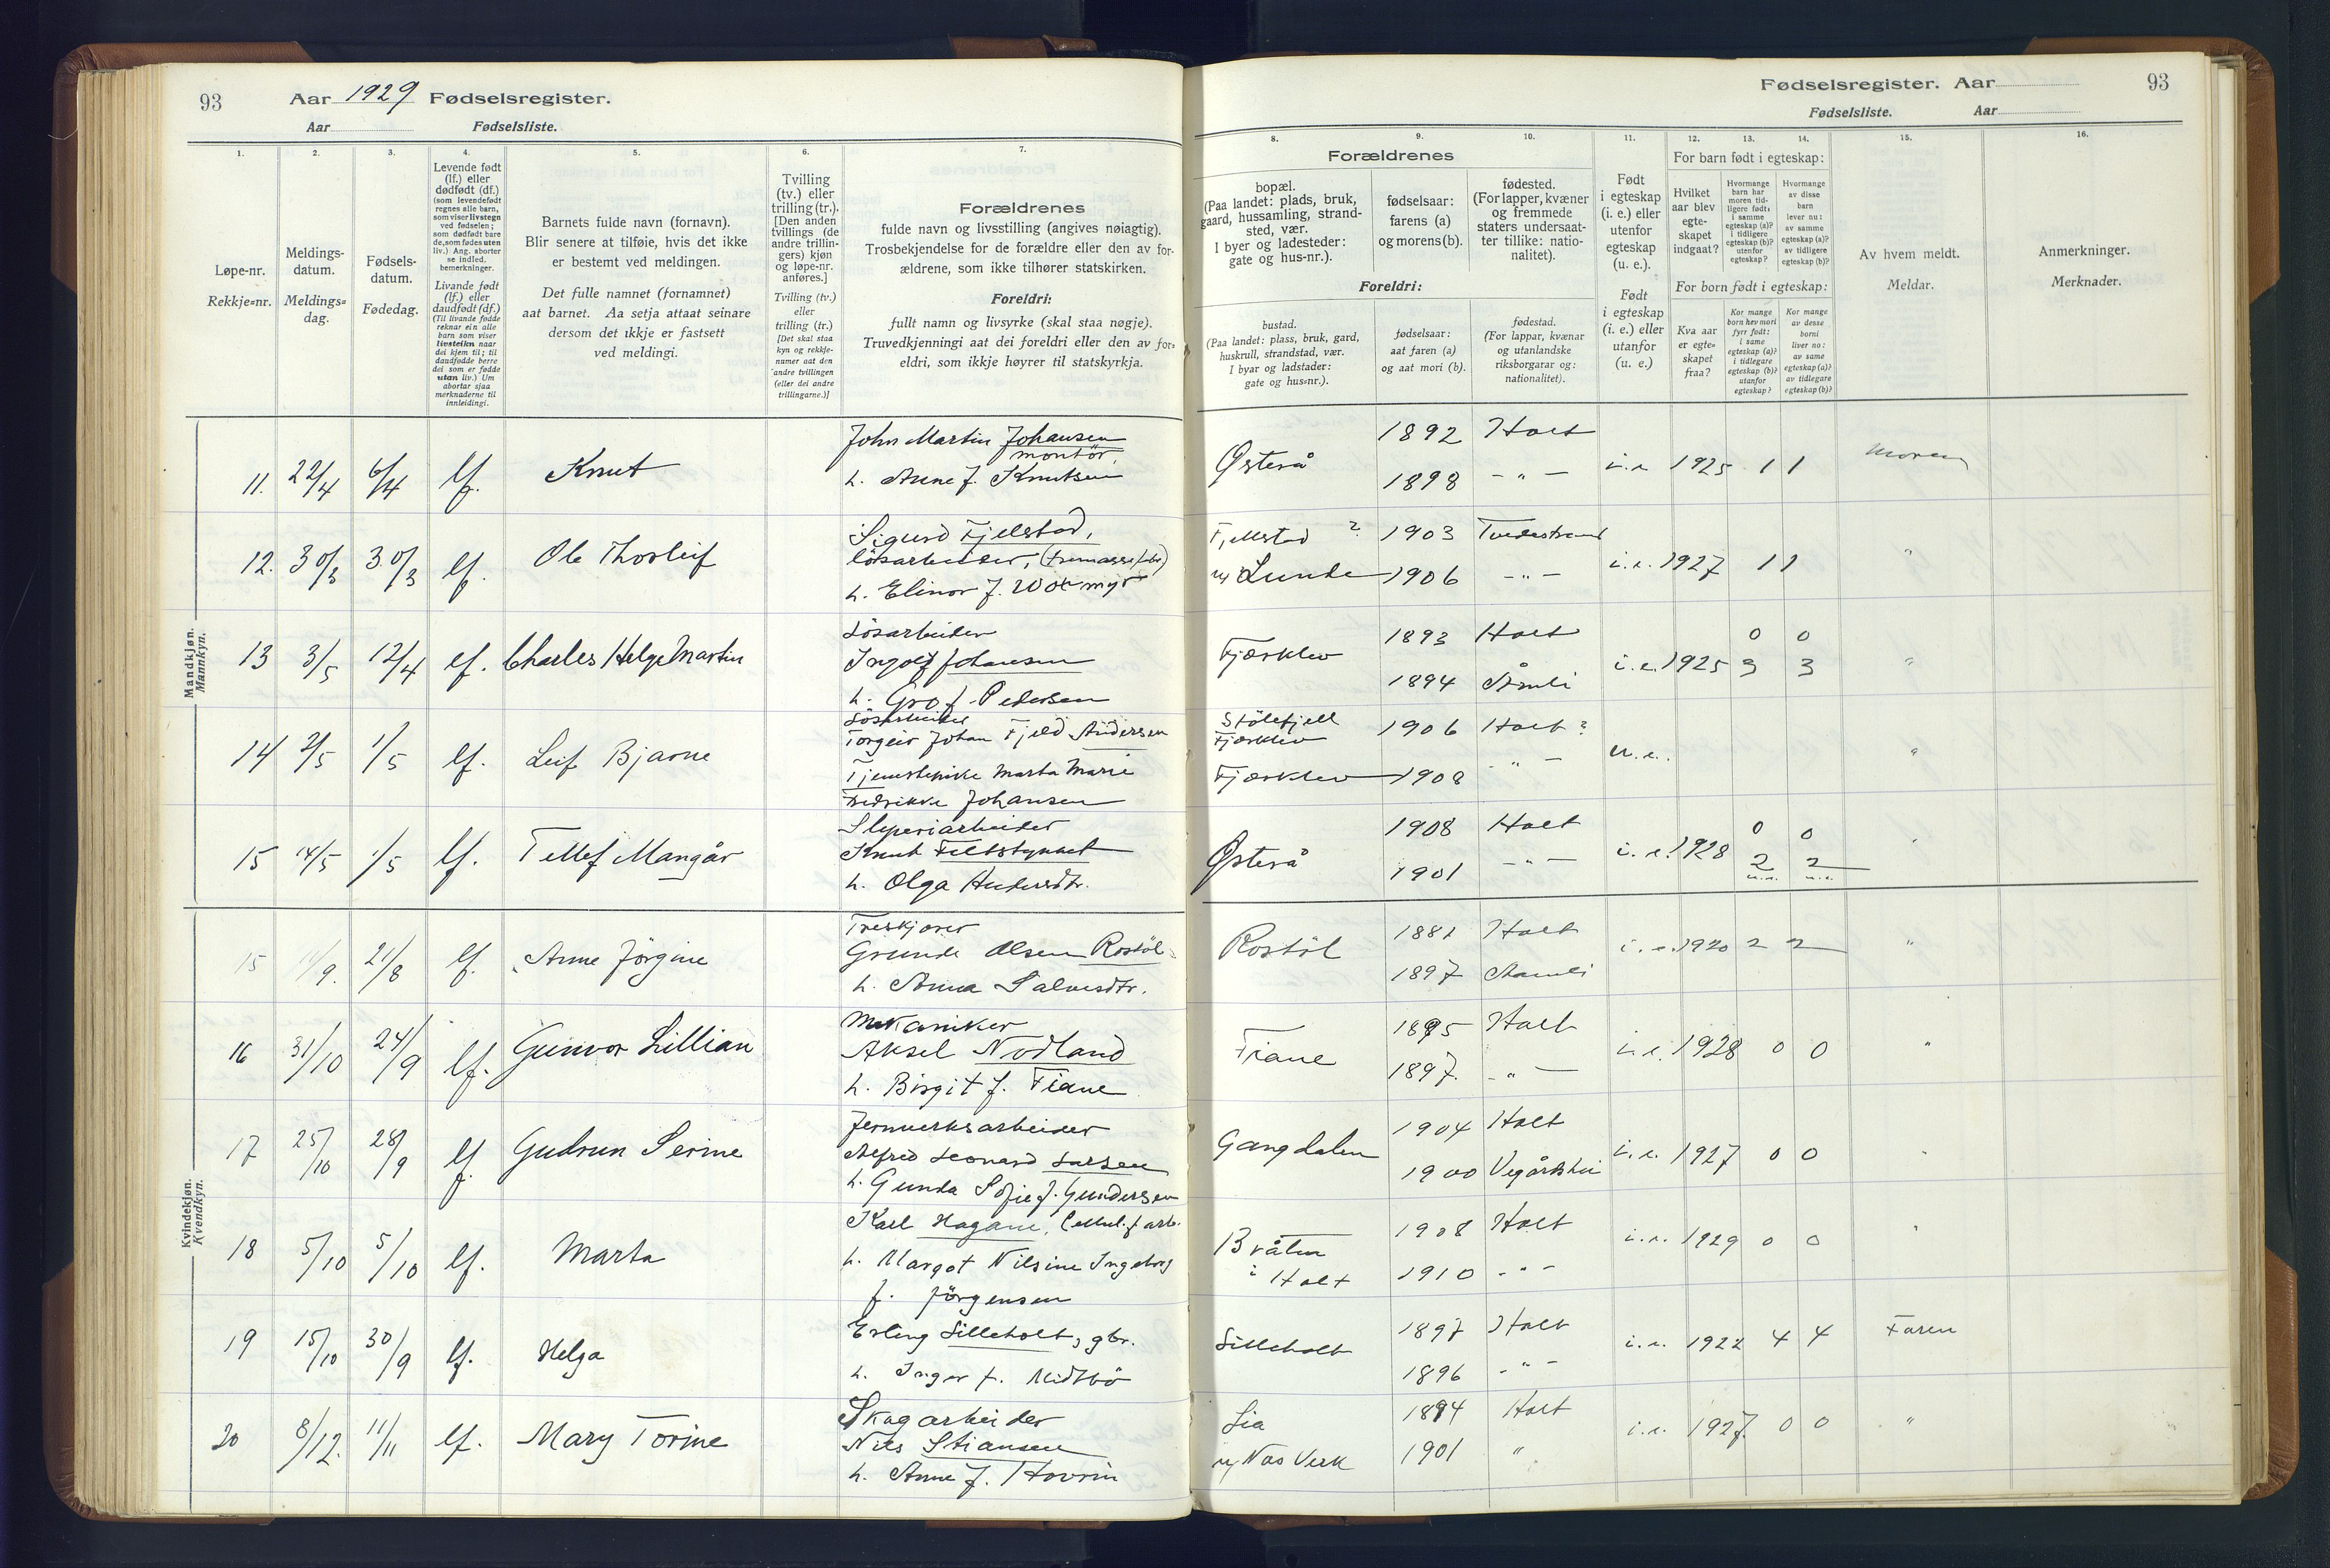 93 Aar 1929 Fødselsregister.
Aar Fødselsliste.
1. 2. 3. 4. 5. 6. 7.
Løpe-nr.
Rekkje=nr.
Meldings-
datum.
Meldings=
dag.
Fødsels-
datum.
Fødedag.
Levende født
(lf.) eller
dødfødt (df.)
(som levendefødt
regnes alle barn,
som viser livstegn
ved fødselen;
som dødfødt bare
de, som fødes uten
liv.) Ang. aborter
se indled.
bemerkninger.
Livande født
(lf.) eller
daudfødt (df.)
(Til livande fødde
reknar ein alle
barn som viser
livsteikn naar
dei kjem til; til
daudfødde berre
dei som er fødde
utan liv.) Um
abortar sjaa
merknaderne til
innleidingi.
Barnets fulde navn (fornavn).
Blir senere at tilføie, hvis det ikke
er bestemt ved meldingen.
Det fulle namnet (fornamnet)
aat barnet. Aa setja attaat seinare
dersom det ikkje er fastsett
ved meldingi.
Tvilling
(tv.) eller
trilling (tr.).
[Den anden
tvillings (de
andre trillin-
gers) kjøn
og løpe-nr.
anføres.]
Tvilling (tv.)
eller
trilling (tr.)
[Det skal staa
kyn og rekkje-
numer aat den
andre tvillingen
(eller dei andre
trillingarne.)]
Forældrenes
fulde navn og livsstilling (angives nøiagtig).
Trosbekjendelse for de forældre eller den av for-
ældrene, som ikke tilhører statskirken.
Foreldri:
fullt namn og livsyrke (skal staa nøgje).
Truvedkjenningi aat dei foreldri eller den av for=
eldri, som ikkje høyrer til statskyrkja.
Mandkjøn.
Mannkyn.
11. 22/4 6/4 lf. Knut
John Martin Johansen
montör.
h. Anne f. Knutsen
12. 30/3 30/3 lf. Ole Thorleif
Sigurd Fjelstad,
lösarbeider,
h. Elinor f.
13 3/5 12/4 lf. Charles Helge Martin
Lösarbeider
Ingolf Johansen
h. Gro f. Pedersen
14 2/5 1/5 lf. Leif Bjarne
Lösarbeider
Torgeir Johan Fjeld Andersen
Tjenestepike Marta Marie
Fredrikke Johansen
15 14/5 1/5 lf. Tellef Mangår
Sliperiarbeider
Knut Feltstykket
h. Olga Andersdtr.
Kvindekjøn.
Kvendkyn.
15 11/9. 21/8 lf. Anne Jörgine
Treskjører
Grunde Olsen Rostöl
h. Anna Salvesdtr.
16 31/10 24/9 lf. Gunvor Lillian
Mekaniker
Aksel Nodland
h. Birgit f. Fiane
17 25/10 28/9 lf. Gudrun Serine
Jernverksarbeider
Alfred Leonard Larsen
h. Gunda Sofie f. Gundersen
18 5/10 5/10 lf. Marta
Karl Hagane, Cellul.f arb.
h. Margot Nilsine Ingeborg
f. Jörgensen
19 15/10 30/9 lf. Helga
Erling Lilleholt, gbr.
h. Inger f. Midtbö
20 8/12. 11/11 lf. Mary Torine
Skogarbeider
Nils Stiansen
h. Anne f. Hovrin
Fødselsregister. Aar 93
Fødselsliste. Aar
8. 9. 10. 11. 12. 13. 14. 15. 16.
Forældrenes
bopæl.
(Paa landet: plads, bruk,
gaard, hussamling, strand-
sted, vær.
I byer og ladesteder:
gate og hus-nr.).
fødselsaar:
farens (a)
og morens (b).
fødested.
(For lapper, kvæner
og fremmede
staters undersaat-
ter tillike: natio-
nalitet).
Foreldri:
bustad.
(Paa landet: plass, bruk, gard,
huskrull, strandstad, vær.
I byar og ladstader:
gate og hus=nr.).
fødselsaar:
aat faren (a)
og aat mori (b).
fødestad.
(For lappar, kvænar
og utanlandske
riksborgarar og:
nationalitet).
Født
i egteskap
(i. e.) eller
utenfor
egteskap
(u. e.).
Født
i egteskap
(i. e.) eller
utanfor
(u. e.)
For barn født i egteskap:
Hvilket
aar blev
egte-
skapet
indgaat?
Hvormange
barn har
moren tid-
ligere født:
i samme
egteskap (a)?
i tidligere
egteskap (b)?
utenfor
egteskap?
Hvormange
av disse
barn
lever nu:
av samme
egteskap (a)?
av tidligere
egteskap (b)?
For born født i egteskap:
Kva aar
er egte=
skapet
fraa?
Kor mange
born hev mori
fyrr født:
i same
egteskap (a)?
i tidlegare
egteskap (b)?
utanfor
egteskap?
Kor mange
av desse
borni
liver no:
av same
egteskap (a)?
av tidlegare
egteskap (b)?
Av hvem meldt.
Meldar.
Anmerkninger.
Merknader.
Østerå 1892 Holt
1898 - " - i. e. 1925 1 1 Moren
Fjellstad ? 1903 Tvedestrand
Lunde 1906 - " - i. e. 1927 1 1 "
Fjærkleiv 1893 Holt 0 0
1894 Åmli i. e. 1925 3 3 "
Stölefjell
Fjærkleiv 1906 Holt ?
Fjærkleiv 1908 - " - u. e. "
Østerå 1908 Holt 0 0
1901 - " - i. e. 1928 2 2 "
u.e. u.e.
Rostöl 1881 Holt
1897 Aamli i. e. 1920 2 2 "
Fiane 1895 Holt
1897. - " - i. e. 1928 0 0 "
Gangdalen 1904 Holt
1900 Vegårshei i. e. 1927 0 0 "
Bråten
i Holt 1908 Holt
1910 - " - i. e. 1929 0 0 "
Lilleholt 1897 Holt
1896 - " - i. e. 1922 4 4 Faren
Lia 1894 Holt
Nas Verk 1901 " i. e. 1927. 0 0 "